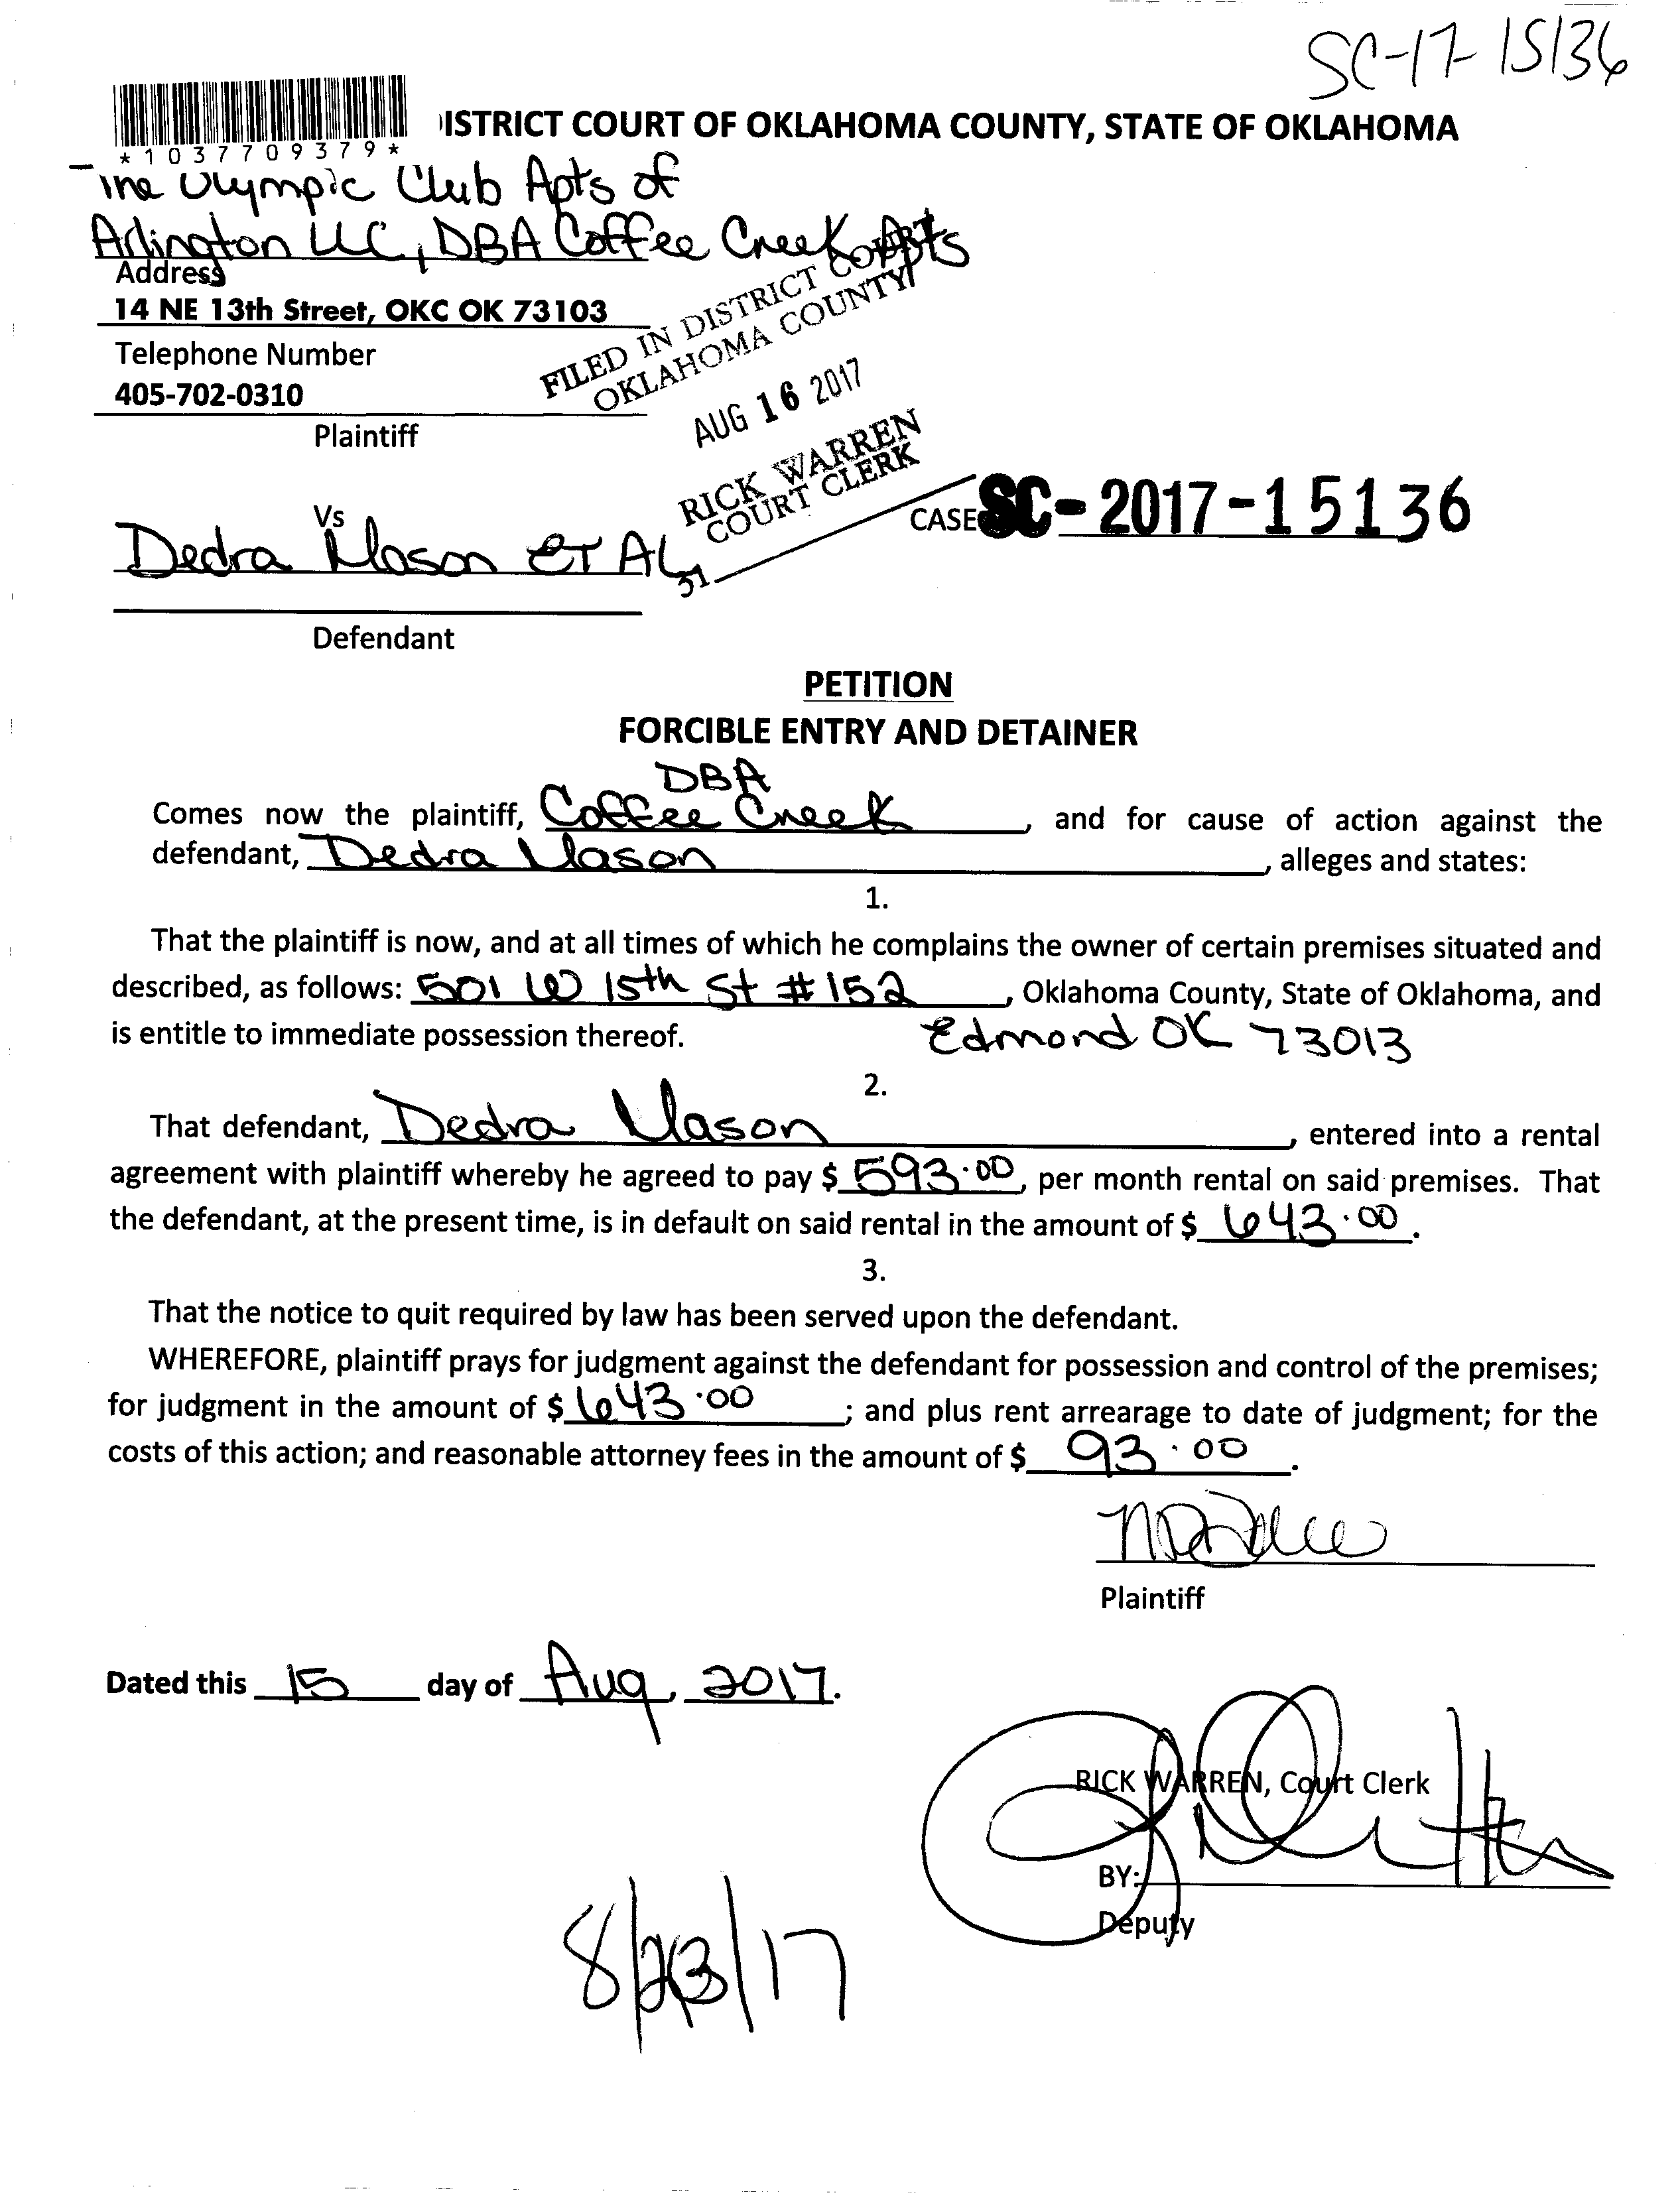 SC-17-15136
ISTRICT COURT OF OKLAHOMA COUNTY, STATE OF OKLAHOMA
*1037709379*
The Olympic Club Apts of
Arlington LLC, DBA Coffee Creek Apts
Address
14 NE 13th Street, OKC OK 73103
Telephone Number
405-702-0310
Plaintiff
FILED IN DISTRICT COURT
OKLAHOMA COUNTY
AUG 16 2017
RICK WARREN
COURT CLERK
31
Vs
CASE SC-2017-15136
Dedra Mason ET AL
Defendant
PETITION
FORCIBLE ENTRY AND DETAINER
DBA
Comes now the plaintiff, Coffee Creek, and for cause of action against the
defendant, Dedra Mason, alleges and states:
1.
That the plaintiff is now, and at all times of which he complains the owner of certain premises situated and
described, as follows: 501 W 15th St #152, Oklahoma County, State of Oklahoma, and
is entitle to immediate possession thereof. Edmond OK 73013
2.
That defendant, Dedra Mason, entered into a rental
agreement with plaintiff whereby he agreed to pay $ 593.00, per month rental on said premises. That
the defendant, at the present time, is in default on said rental in the amount of $ 643.00.
3.
That the notice to quit required by law has been served upon the defendant.
WHEREFORE, plaintiff prays for judgment against the defendant for possession and control of the premises;
for judgment in the amount of $ 643.00; and plus rent arrearage to date of judgment; for the
costs of this action; and reasonable attorney fees in the amount of $ 93.00.
Plaintiff
Dated this 15 day of Aug, 2017.
RICK WARREN, Court Clerk
BY:
Deputy
8/23/17